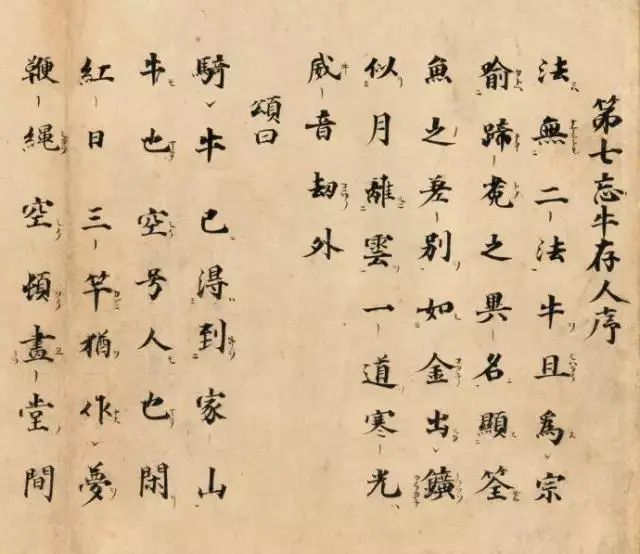 第七忘牛存人序
法無二法牛且爲宗
喻蹄菟之異名顯筌
魚之差別如金出鑛
似月離雲一道寒光
威音劫外
頌曰
騎牛已得到家山
牛也空号人也閑
紅日三竿猶作夢
鞭繩空頓畫堂間